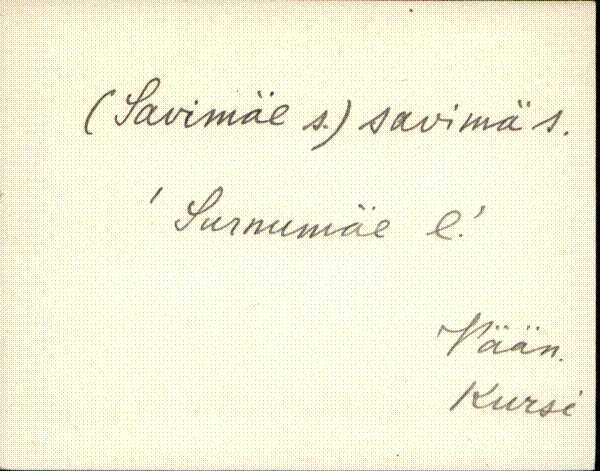 (Savimäe s.) savimä s.
'Surnumäe l.'
Vään.
Kursi